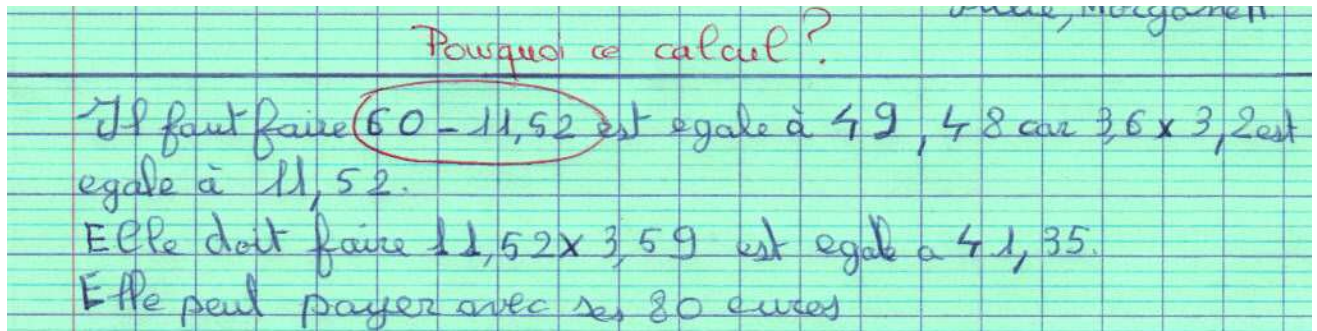 Pourquoi ce calcul ?
Il faut faire 60 - 11,52 est egale à 49,48 car 3,6 x 3,2 est
egale à 11,52.
Elle doit faire 11,52 x 3,59 est egale a 41,35.
Elle peut payer avec ses 80 euros